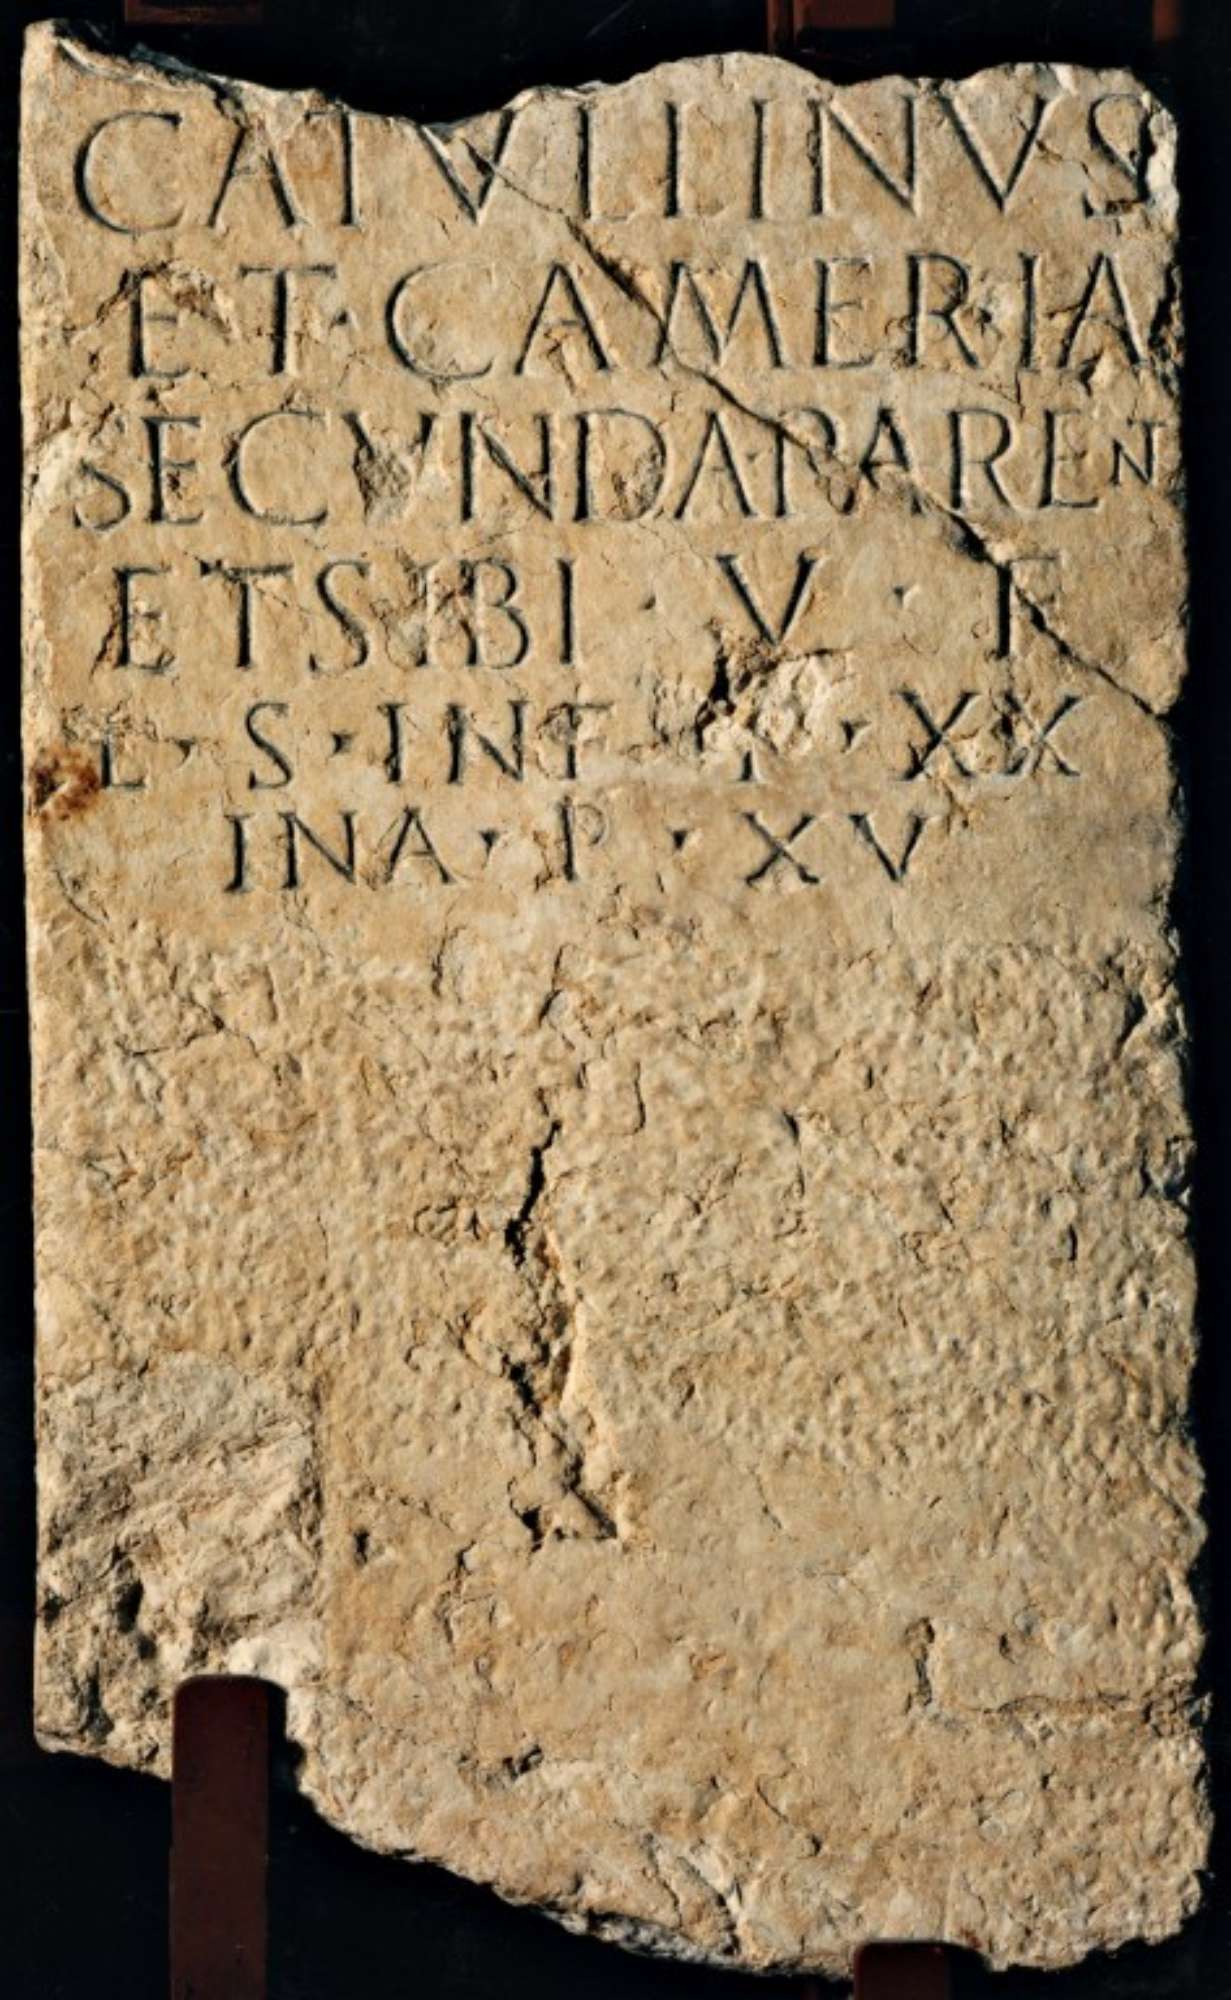 CATVLLINVS
ET · CAMERIA
SECVNDA · PARENT
ET SIBI · V · F
L · S · IN F · P · XX
IN A · P · XV